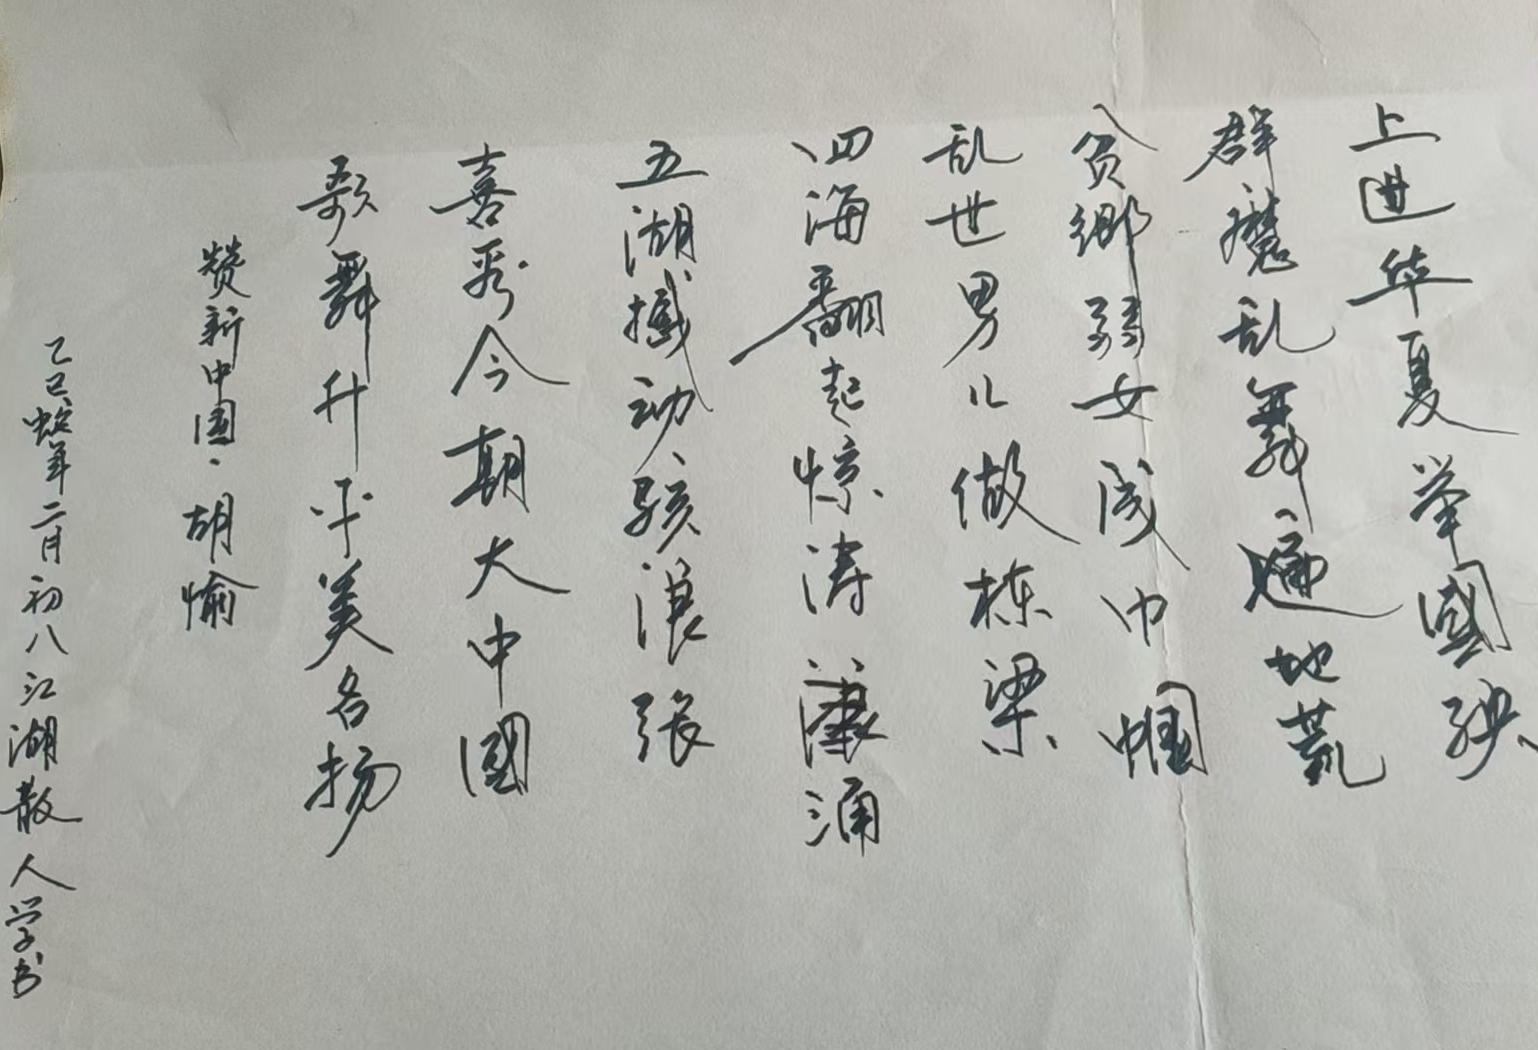 上进华夏举國殃
群魔乱舞遍地荒
贫鄉弱女成巾帼
乱世男儿做栋梁
四海翻起惊涛涌
五湖撼动骇浪张
喜看今期大中國
歌舞升平美名扬
赞新中国·胡愉
乙巳蛇年二月初八江湖散人学书